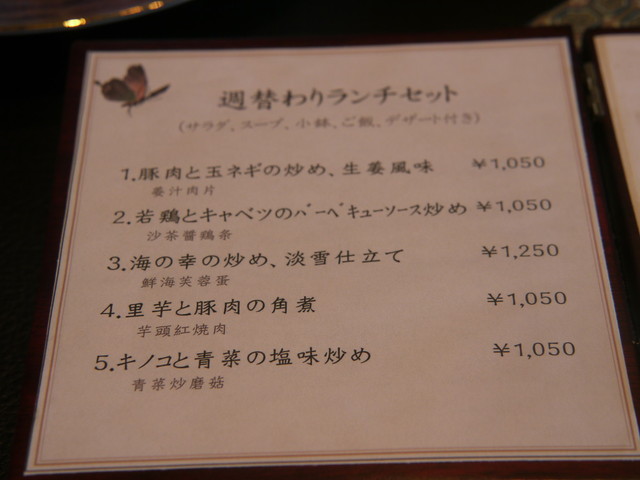 週替わりランチセット
(サラダ、スープ、小鉢、ご飯、デザート付き)
1.豚肉と玉ネギの炒め、生姜風味 ¥1,050
姜汁肉片
2.若鶏とキャベツのバーベキューソース炒め ¥1,050
沙茶醤鶏条
3.海の幸の炒め、淡雪仕立て ¥1,250
鮮海芙蓉蛋
4.里芋と豚肉の角煮 ¥1,050
芋頭紅焼肉
5.キノコと青菜の塩味炒め ¥1,050
青菜炒磨菇